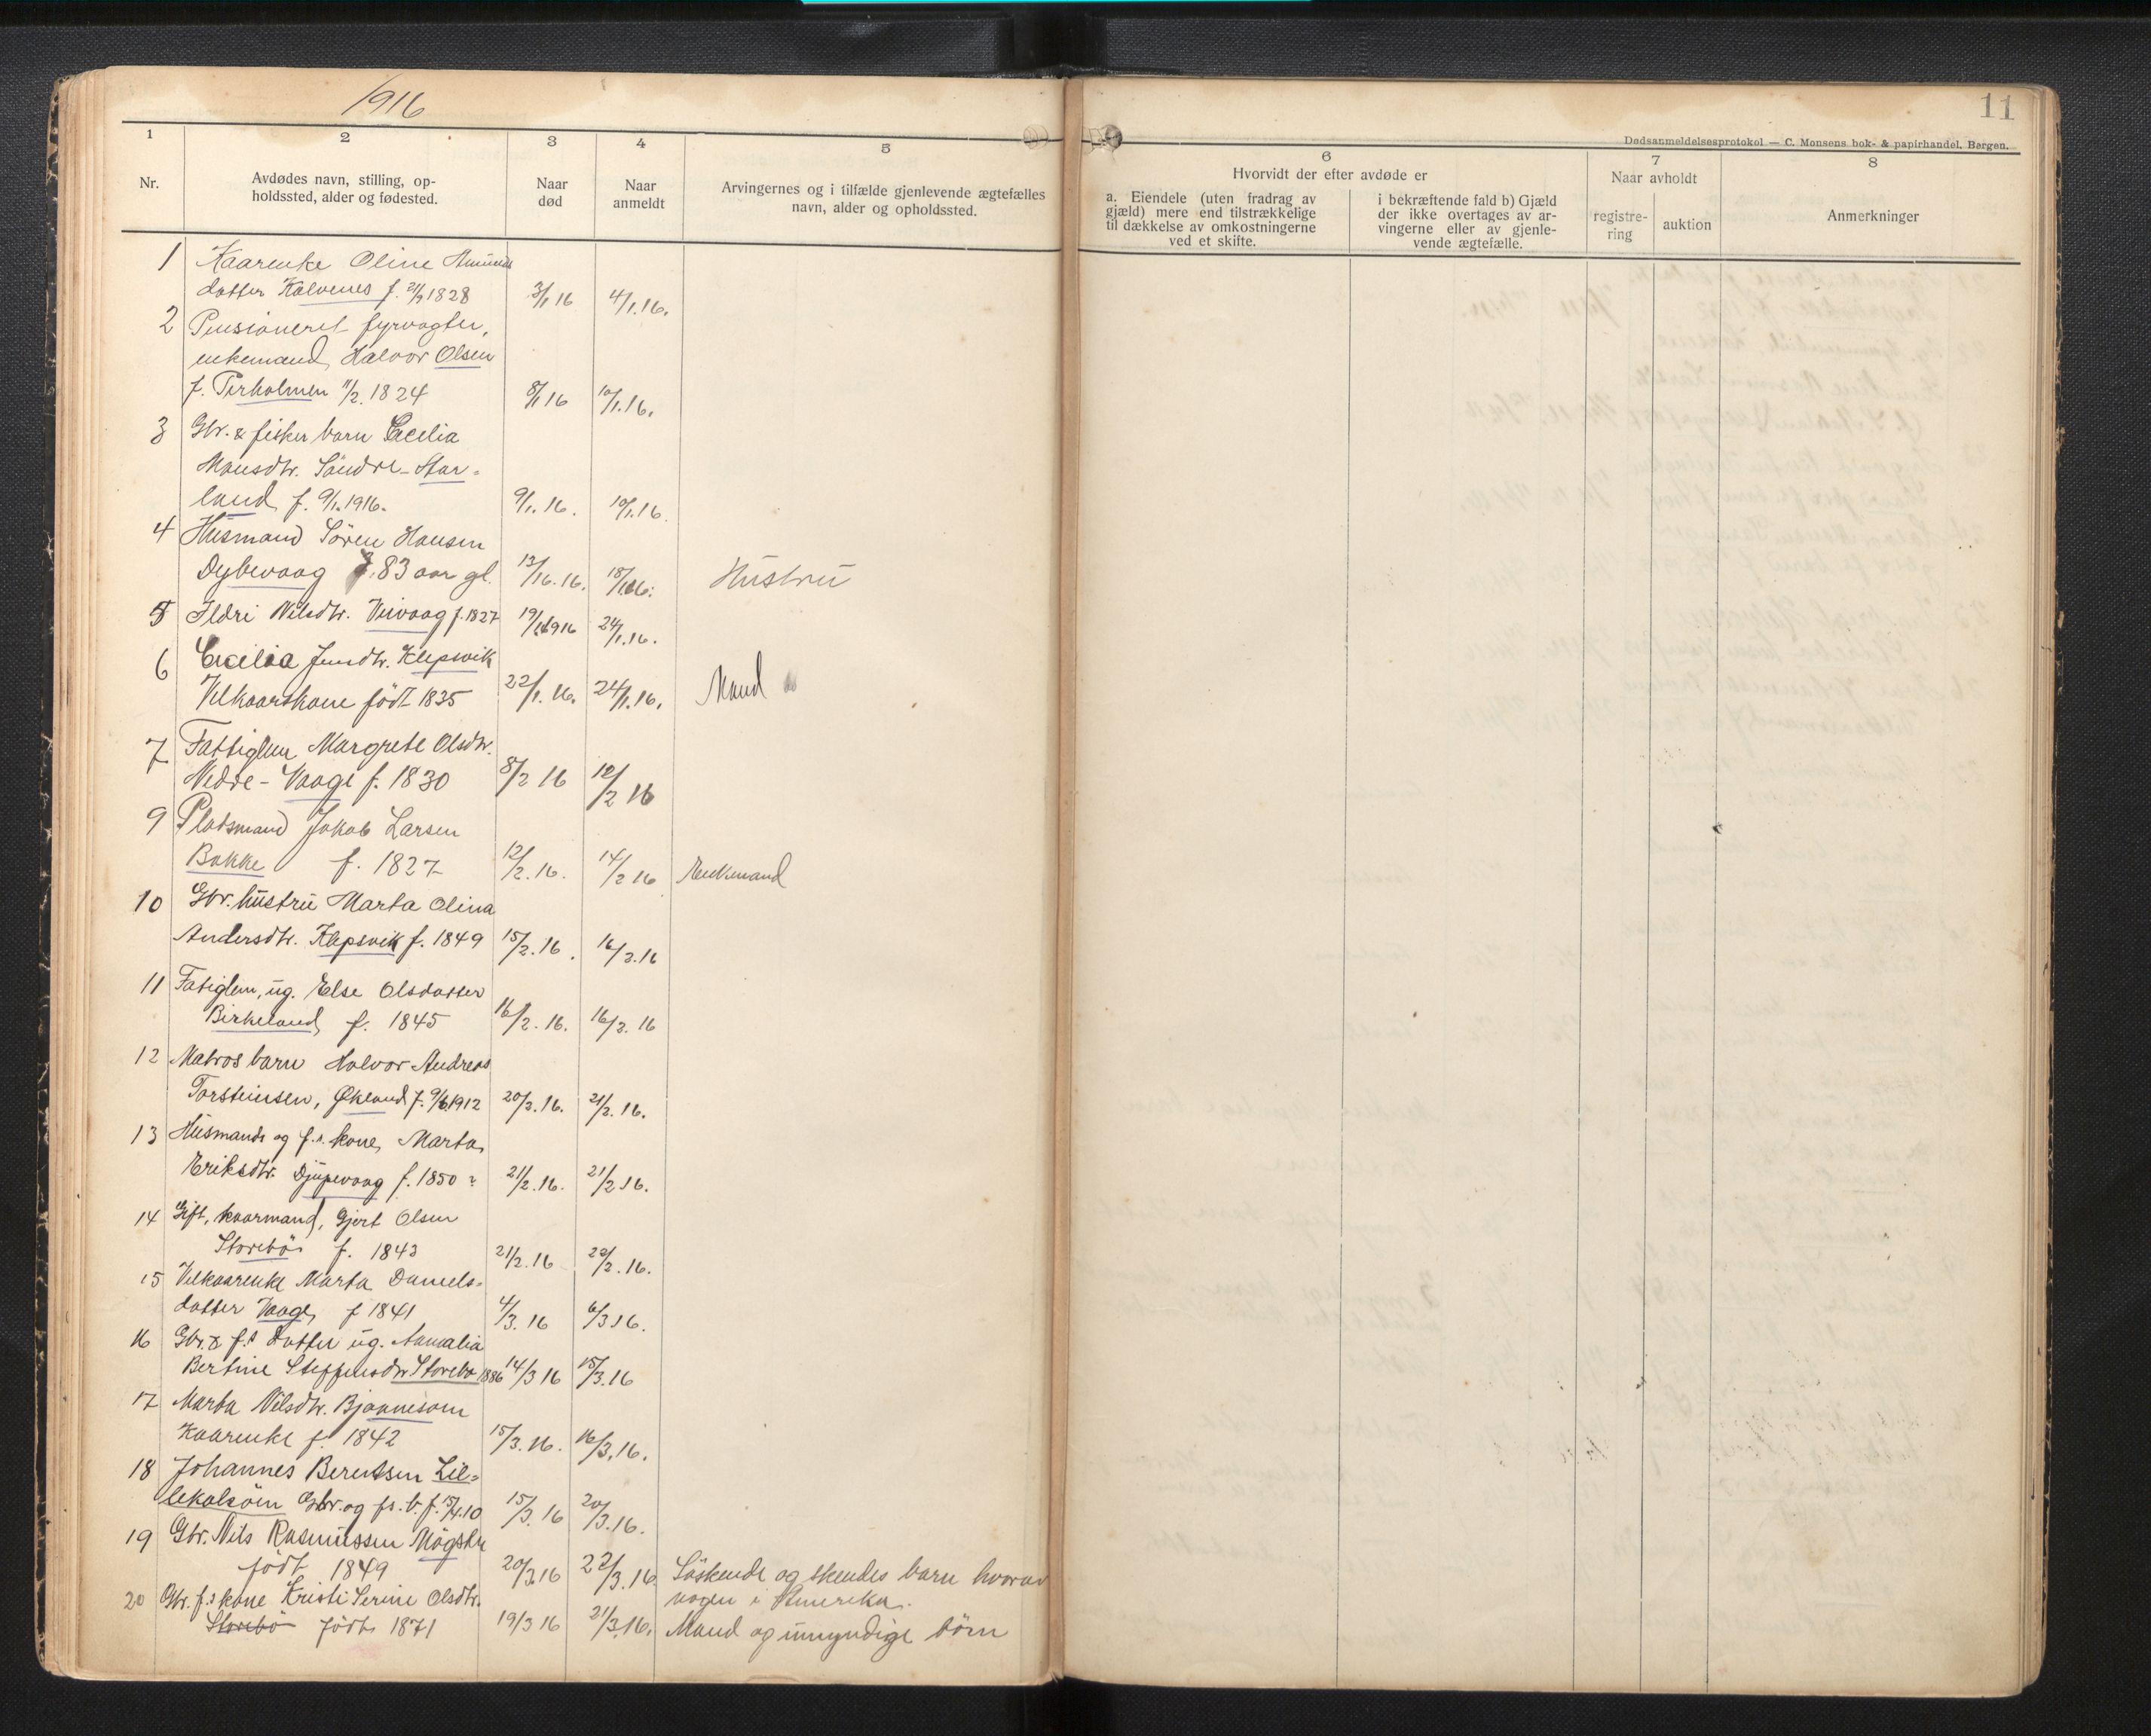 1916
11
Dødsanmeldelsesprotokol — C. Monsens bok- & papirhandel, Bergen.
1 2 3 4 5 6 7 8
Nr.
Avdødes navn, stilling, op-
holdssted, alder og fødested.
Naar
død
Naar
anmeldt
Arvingernes og i tilfælde gjenlevende ægtefælles
navn, alder og opholdssted.
Hvorvidt der efter avdøde er
a. Eiendele (uten fradrag av
gjæld) mere end tilstrækkelige
til dækkelse av omkostningerne
ved et skifte.
i bekræftende fald b) Gjæld
der ikke overtages av ar-
vingerne eller av gjenle-
vende ægtefælle.
Naar avholdt
registre-
ring
auktion
Anmerkninger
1 Kaarenke Oline Amunds
datter Kalvenes f. 1828 3/1 16 4/1.16.
2 Pensioneret fyrvogter,
enkemand, Halvor Olsen
f. Terholmen 11/2. 1824 8/1 16 10/1.16.
3 Gbr. & fisker barn Cecilia
Monsdtr. Söndre-Stor-
land f. 9/1.1916. 9/1.16. 10/1.16.
4 Husmand Sören Hansen
Dybevaag 83 aar gl. 13/1 16. 18/1 16. Hustru
5 Ildri Nilsdtr. Vivaag f. 1827 19/1 1916 24/1.16.
6 Cecilia Jensdtr. Klepsvik
Vilkaarskone födt 1835 22/1.16. 24/1.16. Mand
7 Fattiglem Margrete Olsdtr.
Nedre-Vaage f. 1830 8/2 16 12/2 16
9 Pladsmand Jakob Larsen
Bakke f. 1827 12/2.16. 14/2 16 Enkemand
10 Gbr. hustru Marta Olina
Andersdtr. Klepsvik f. 1849 15/2.16. 16/2.16
11 Fatiglem, ug. Else Olsdatter
Birkeland f. 1845 16/2.16. 16/2.16
12 Matros barn Halvor Andreas
Torsteinsen, Økland f. 9/6 1912 20/2.16. 21/2.16.
13 Husmands og f.s. kone, Marta
Eriksdtr. Djupevaag f. 1850 ? 21/2.16. 21/2 16.
14 Gift, kaarmand, Gjert Olsen
Storebö f. 1843 21/2.16 22/2.16.
15 Vilkaarenke Marta Daniels-
datter Vaage f 1841 4/3.16 6/3 16.
16 Gbr. & f.s Datter ug. Aamalia
Bertine Steffensdtr Storebö 1886 14/3 16 15/3.16
17 Marta Nilsdtr. Bjönnesöen
Kaarenke f. 1842 15/3.16. 16/3.16.
18 Johannes Berentsen Lil-
lekalsöen Gbr. og fs. b. f. 15/4.10 15/3.16 20/3.16.
19 Gbr. Nils Rasmussen Mögster
födt 1849 20/3.16 22/3.16. Söskende og skendes barn hvorav
nogen i Amerika.
20 Gbr. f.s kone Kristi Serine Olsdtr.
Storebö födt 1871 19/3 16 21/3.16. Mand og umyndige börn